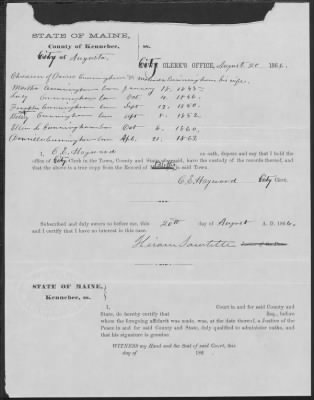 STATE OF MAINE,
County of Kennebec, ss.
City of Augusta,
City CLERK'S OFFICE, August 20 1866.
Children of Daniel Cunningham & Cunningham his wife.
Martha Cunningham born January 18. 1845
Lucy Cunningham born Oct 4. 1846.
Franklin Cunningham born Sept 12. 1850.
Cunningham born Sept 8. 1852
Ellen S. Cunningham born Oct 6. 1860.
Cunningham born Apl. 21. 1863
I, C. E. Hayward on oath, depose and say that I hold the
office of City Clerk in the Town, County and State aforesaid, have the custody of the records thereof, and
that the above is a true copy from the Record of Births in said Town.
C. E. Hayward City Clerk.
Subscribed and duly sworn to before me, this 20th day of August A. D. 1866.
and I certify that I have no interest in this case.
Hiram Sawtelle Justice of the Peace
STATE OF MAINE,
Kennebec, ss.
I, Court in and for said County and
State, do hereby certify that Esq., before
whom the foregoing affidavit was made, was, at the date thereof, a Justice of the
Peace in and for said County and State, duly qualified to administer oaths, and
that his signature is genuine.
WITNESS my Hand and the Seal of said Court, this
day of 186